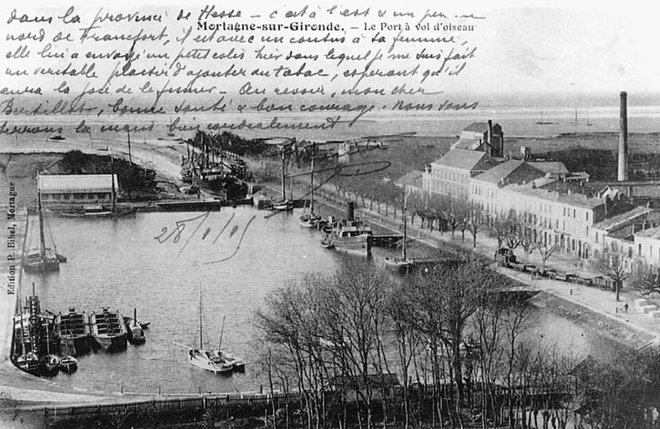 dans la province de Hesse - c'est à l'est & un peu
Mortagne-sur-Gironde. — Le Port à vol d'oiseau
nord de Francfort, il est avec un cousin à ta femme,
elle lui a envoyé un petit colis hier dans lequel je me suis fait
un véritable plaisir d'ajouter du tabac, espérant qu'il
aura la joie de le fumer - Au revoir, mon cher
bonne santé & bon courage. Nous vous
serrons la main bien cordialement
28/1/15
Edition P. Bihel, Mortagne